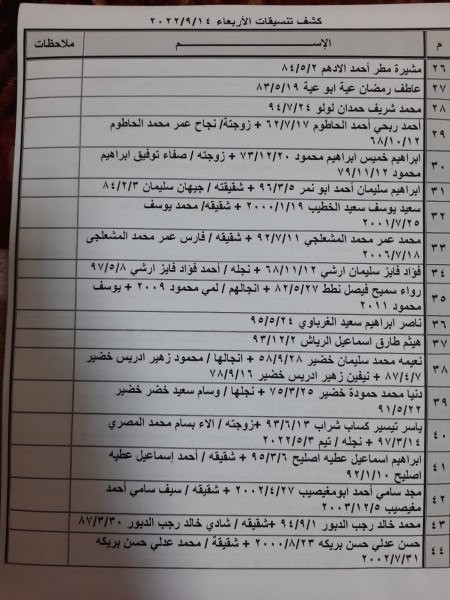 كشف تنسيقات الأربعاء ٢٠٢٢/٩/١٤
م الإســـــــم ملاحظات
٢٦ مشيرة مطر أحمد الادهم ٨٤/٥/٢
٢٧ عاطف رمضان عية ابو عية ٨٣/٥/١٩
٢٨ محمد شريف حمدان لولو ٩٤/٧/٢٤
٢٩ أحمد ربحي أحمد الحاطوم ٦٢/٧/١٧ + زوجتة/ نجاح عمر محمد الحاطوم
٦٨/١٠/١٢
٣٠ ابراهيم خميس ابراهيم محمود ٧٣/١٢/٢٠ + زوجته / صفاء توفيق ابراهيم
محمود ٧٩/١١/١٢
٣١ ابراهيم سليمان أحمد ابو نمر ٩٦/٣/٥ + شقيقته / جيهان سليمان ٨٤/٢/٣
٣٢ سعيد يوسف سعيد الخطيب ٢٠٠٠/١/١٩ + شقيقه/ محمد يوسف
٢٠٠١/٧/٢٥
٣٣ محمد عمر محمد المشعلجي ٩٢/٧/١١ + شقيقه / فارس عمر محمد المشعلجي
٢٠٠٦/٧/١٨
٣٤ فؤاد فايز سليمان ارشي ٦٨/١١/١٢ + نجله / أحمد فؤاد فايز ارشي ٩٧/٥/٨
٣٥ رواء سميح فيصل نطط ٨٢/٥/٢٧ + انجالهم / لمي محمود ٢٠٠٩ + يوسف
محمود ٢٠١١
٣٦ ناصر ابراهيم سعيد الغرباوي ٩٥/٥/٢٤
٣٧ هيثم طارق اسماعيل الرياش ٩٣/١٢/٢
٣٨ نعيمه محمد سليمان خضير ٥٨/٩/٢٨ + انجالها / محمود زهير ادريس خضير
٨٧/٤/٧ + نيفين زهير ادريس خضير ٧٨/٩/١٦
٣٩ دنيا محمد حمودة خضير ٧٥/٣/٢٥ + نجلها / وسام سعيد خضر خضير
٩١/٥/٢٢
٤٠ ياسر تيسير كساب شراب ٩٣/٦/١٣ +زوجته / الاء بسام محمد المصري
٩٧/٣/١٤ + نجله / تيم ٢٠٢٢/٥/٣
٤١ ابراهيم اسماعيل عطيه اصليح ٩٥/٣/٦ + شقيقه / أحمد إسماعيل عطيه
اصليح ٩٢/١/١٠
٤٢ مجد سامي أحمد ابومغيصيب ٢٠٠٢/٤/٢٧ + شقيقه / سيف سامي أحمد
مغيصيب ٢٠٠٣/١٢/٥
٤٣ محمد خالد رجب الدبور ٩٤/٩/١ +شقيقه / شادي خالد رجب الدبور ٨٧/٣/٣٠
٤٤ حسن عدلي حسن بريكه ٢٠٠٠/٨/٢٣ + شقيقة / محمد عدلي حسن بريكه
٢٠٠٢/٧/٣١